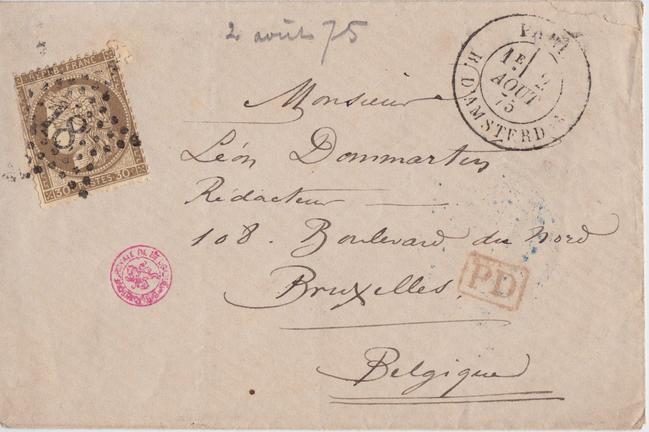 2 août 75
REPUB FRANC
8
30 POSTES 30
PARIS
1E 2
AOUT
75
R. D'AMSTERDAM
Monsieur
Léon Dommartin
Rédacteur
108. Boulevard du Nord
Bruxelles.
PD
Belgique